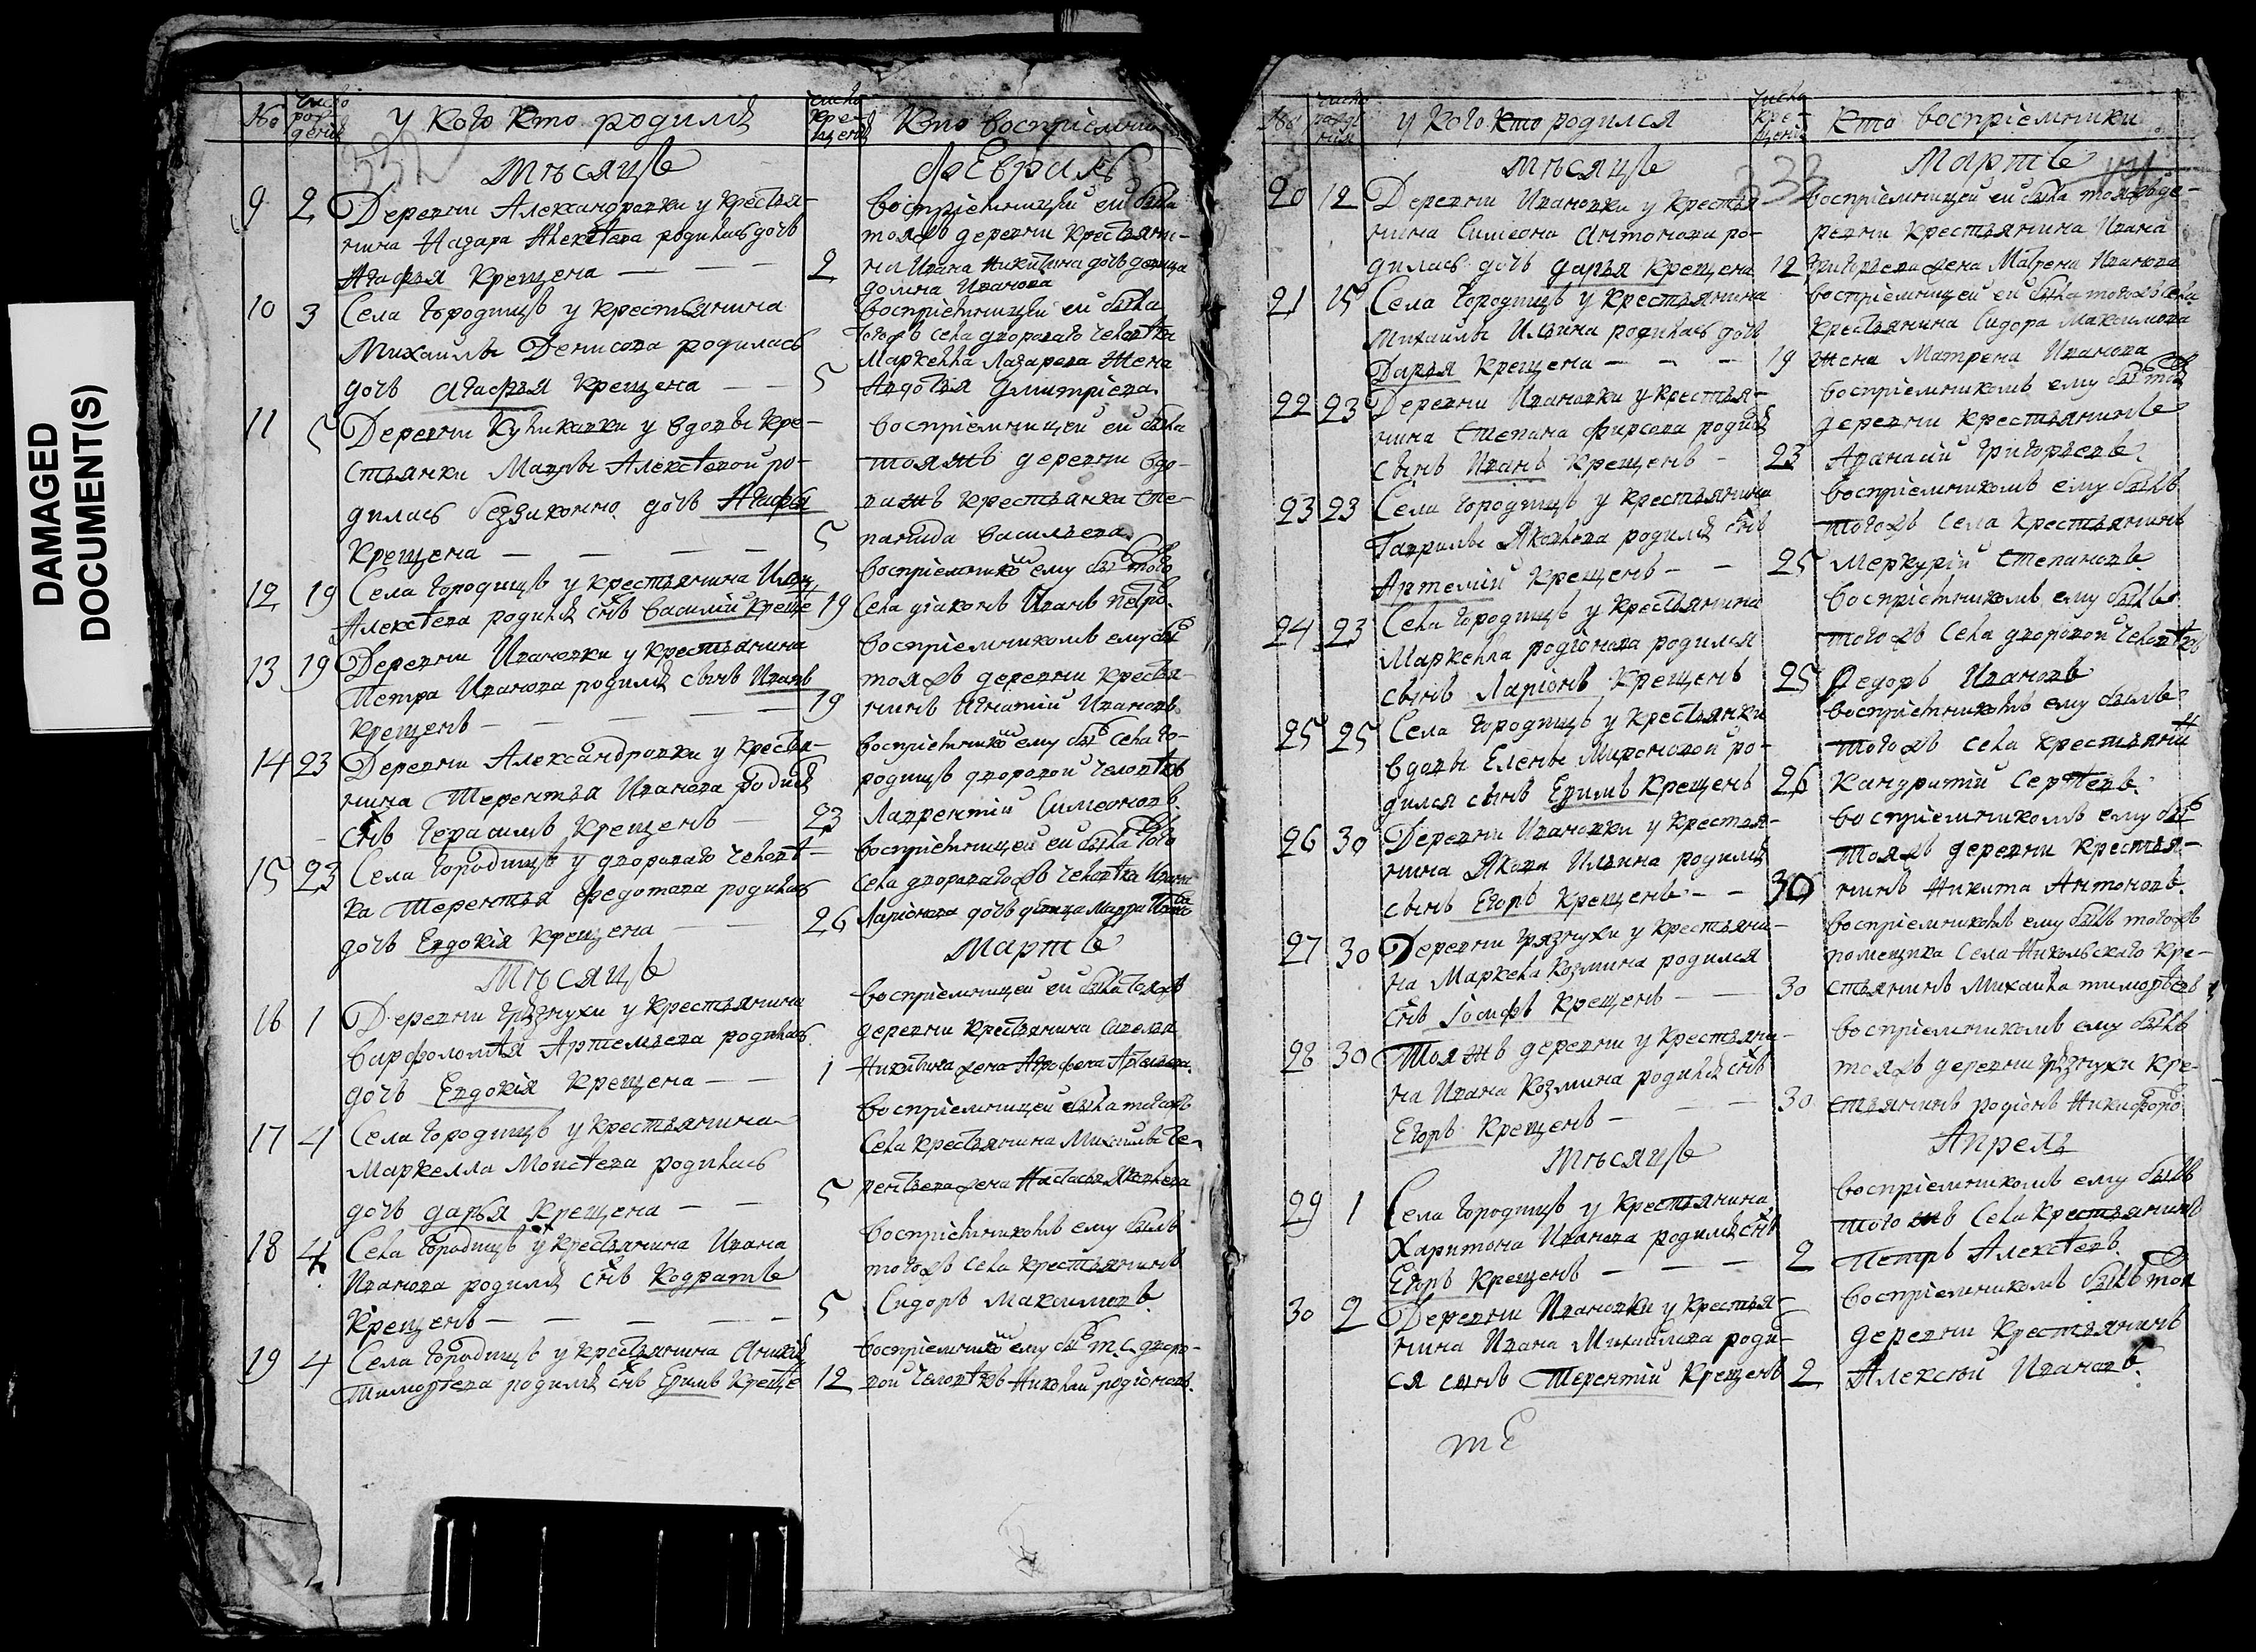 DAMAGED
DOCUMENT(S)
№ число рождения у кого кто родился число крещения Кто восприемники
332
мѣсяцъ Февраль
9 2 Деревни Александровки у крестья-
нина Назара Алексѣева родилась дочь
Агафья крещена — — —
2
восприемницей ей была
тояжъ деревни крестьяни-
на Ивана Никитина дочь девица
Иванова
10 3 Села Городищъ у крестьянина
Михаилы Денисова родилась
дочь Агафья крещена — —
5
восприемницей ей была
тогожъ села двороваго человѣка
Маркелла Лазарева жена
Авдотья Дмитріева
11 5 Деревни Куликовки у вдовы кре-
стьянки Мавры Алексѣевой ро-
дилась беззаконно дочь Агафья
крещена — — — —
5
восприемницей ей была
тояжъ деревни вдо-
ва жъ крестьянка Сте-
панида Васильева
12 19 Села Городищъ у крестьянина Ильи
Алексѣева родился снъ Василій креще
19
восприемнико ему бы того
села діаконъ Иванъ Петро.
13 19 Деревни Ивановки у крестьянина
Петра Иванова родился сынъ Иванъ
крещенъ — — — —
19
восприемникомъ ему бы
тояжъ деревни крестья-
нинъ Игнатій Ивановъ
14 23 Деревни Александровки у крестья-
нина Терентья Иванова родился
снъ Герасимъ крещенъ —
23
восприемнико ему бы села Го-
родищъ дворовой человѣкъ
Лаврентій Симеоновъ.
15 23 Села Городищъ у двороваго человѣ-
ка Терентья Федотова родилась
дочь Евдокія крещена — —
26
восприемницей ей была того
села двороваго жъ человѣка Ивана
Ларіонова дочь девица Марфа Иванова
мѣсяцъ Мартъ
16 1 Деревни Грязнухи у крестьянина
Варфоломѣя Артемьева родилась
дочь Евдокія крещена — —
1
восприемницей ей была тояжъ
деревни крестьянина Савелья
Никитина жена Аграфена Артемьева.
17 4 Села Городищъ у крестьянина
Маркелла Моисѣева родилась
дочь Дарья крещена — —
5
восприемницей была тогожъ
села крестьянина Михаилы Те-
рентьева жена Настасья Яковлева
18 4 Села Городищъ у крестьянина Ивана
Иванова родился снъ Кодратъ
крещенъ — — — — —
5
восприемникомъ ему былъ
тогожъ села крестьянинъ
Сидоръ Максимовъ.
19 4 Села Городищъ у крестьянина
Тимофеева родился снъ Ефимъ креще
12
восприемнико ему бы т. с. дворо-
вой человѣкъ Николай Родіоновъ.
№ число рожденія у кого кто родился число крещенія Кто восприемники
333
мѣсяцъ Мартъ
20 12 Деревни Ивановки у крестья-
нина Симеона Антонова ро-
дилась дочь Дарья крещена
12
восприемницей ей была тояжъ де-
ревни крестьянина Ивана
Григорьева жена Матрена Иванова
21 15 Села Городищъ у крестьянина
Михаилы Ильина родилась дочь
Дарья крещена — — —
19
восприемницей ей была тогожъ села
крестьянина Сидора Максимова
жена Матрена Иванова
22 23 Деревни Ивановки у крестья-
нина Степана Фирсова родился
сынъ Иванъ крещенъ —
23
восприемникомъ ему бы той
деревни крестьянинъ
Афанасій Григорьевъ
23 23 Села Городищъ у крестьянина
Гаврилы Яковлева родился снъ
Артемій крещенъ — —
25
восприемникомъ ему былъ
тогожъ села крестьянинъ
Меркурій Степановъ
24 23 Села Городищъ у крестьянина
Маркелла Родіонова родился
сынъ Ларіонъ крещенъ
25
восприемникомъ ему былъ
тогожъ села дворовой человѣкъ
Федоръ Ивановъ
25 25 Села Городищъ у крестьянки
вдовы Елены Мироновой ро-
дился сынъ Ефимъ крещенъ
26
восприемникомъ ему былъ
тогожъ села крестьянин
Кандратій Сергѣевъ.
26 30 Деревни Ивановки у крестья-
нина Якова Ильина родился
сынъ Егоръ крещенъ — —
30
восприемникомъ ему бы
тояжъ деревни крестья-
нинъ Никита Антоновъ.
27 30 Деревни Грязнухи у крестьяни-
на Маркела Козмина родился
снъ Іосифъ крещенъ — —
30
восприемникомъ ему былъ тогожъ
помещика села Никольскаго кре-
стьянинъ Михаила Тимофѣевъ
28 30 Тоя жъ деревни у крестьяни-
на Ивана Козмина родился снъ
Егоръ крещенъ — — —
30
восприемникомъ ему былъ
тояжъ деревни Грязнухи кре-
стьянинъ Родіонъ Никифоро
мѣсяцъ Апрель
29 1 Села Городищъ у крестьянина
Харитона Иванова родился снъ
Егоръ крещенъ — — —
2
восприемникомъ ему былъ
того жъ села крестьянинъ
Петръ Алексѣевъ.
30 2 Деревни Ивановки у крестья-
нина Ивана Михайлова роди-
ся сынъ Терентій крещенъ
2
восприемникомъ былъ тоя
деревни крестьянинъ
Алексѣй Ивановъ.
те